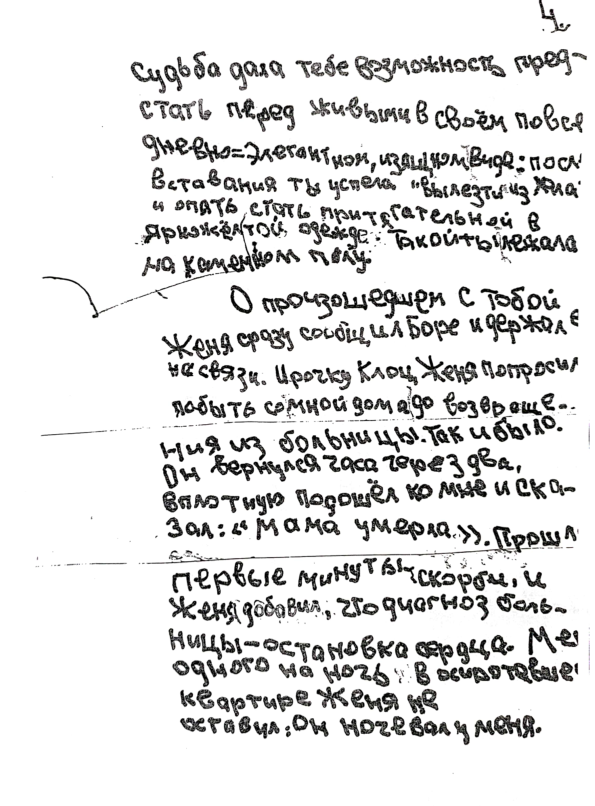 4.
Судьба дала тебе возможность пред-
стать перед живыми в своём повсе
дневно=элегантном, изящном виде: посл
вставания ты успела "вылезти из хала
и опять стать притягательной в
яркожёлтой одежде. Такой ты лежала
на каменном полу.
О произошедшем с тобой
Женя сразу сообщил Боре и держал е
на связи. Ирочку Клоц, Женя попросил
побыть со мной дома до возвраще-
ния из больницы. Так и было.
Он вернулся часа через два,
вплотную подошёл ко мне и ска-
зал: "Мама умерла.». Прошл
первые минуты скорби, и
Женя добавил, что диагноз боль-
ницы-остановка сердца. Ме
одного на ночь в осиротевше
квартире Женя не
оставил: Он ночевал у меня.